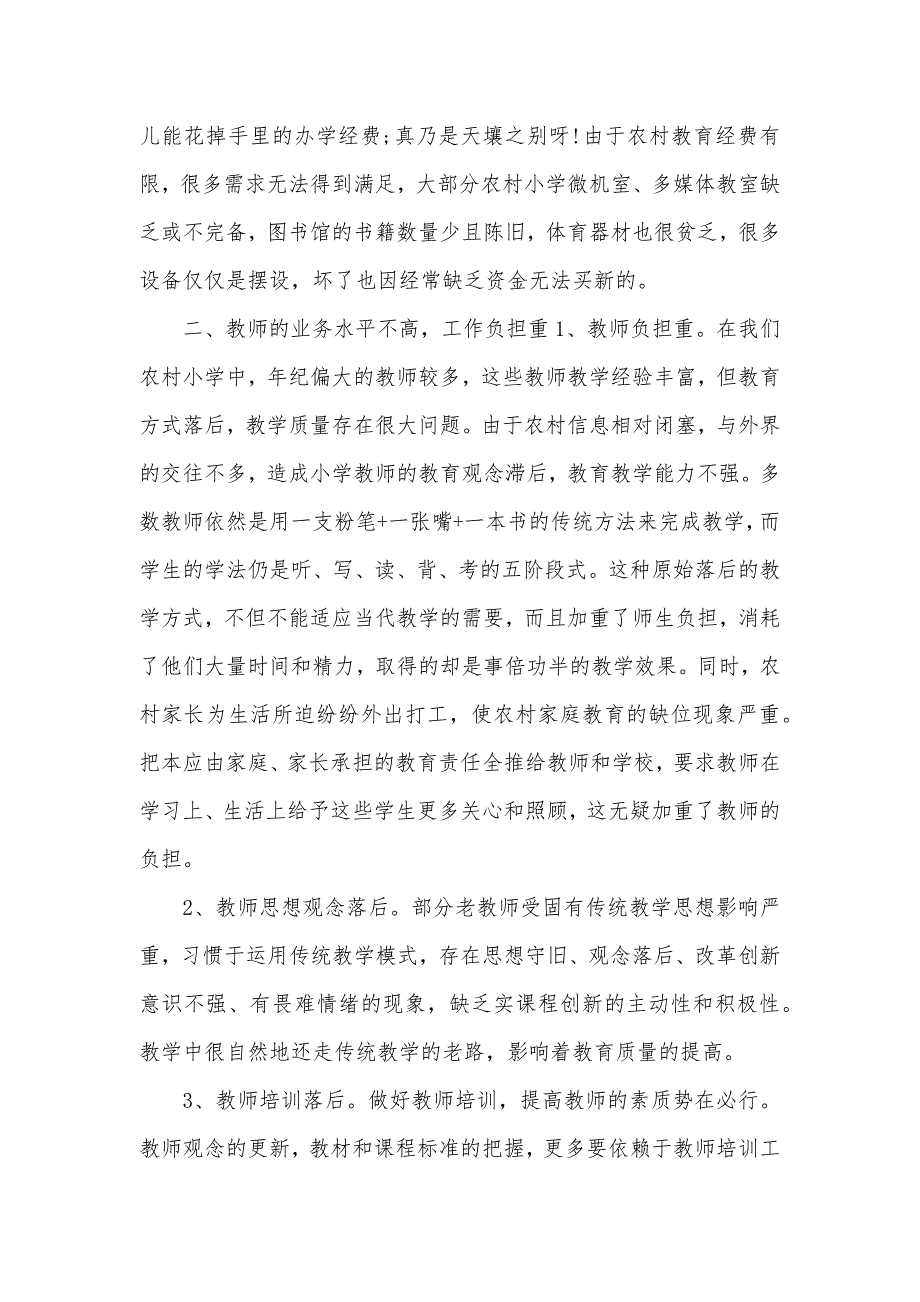 儿能花掉手里的办学经费;真乃是天壤之别呀!由于农村教育经费有
限，很多需求无法得到满足，大部分农村小学微机室、多媒体教室缺
乏或不完备，图书馆的书籍数量少且陈旧，体育器材也很贫乏，很多
设备仅仅是摆设，坏了也因经常缺乏资金无法买新的。
二、教师的业务水平不高，工作负担重 1、教师负担重。在我们
农村小学中，年纪偏大的教师较多，这些教师教学经验丰富，但教育
方式落后，教学质量存在很大问题。由于农村信息相对闭塞，与外界
的交往不多，造成小学教师的教育观念滞后，教育教学能力不强。多
数教师依然是用一支粉笔+一张嘴+一本书的传统方法来完成教学，而
学生的学法仍是听、写、读、背、考的五阶段式。这种原始落后的教
学方式，不但不能适应当代教学的需要，而且加重了师生负担，消耗
了他们大量时间和精力，取得的却是事倍功半的教学效果。同时，农
村家长为生活所迫纷纷外出打工，使农村家庭教育的缺位现象严重。
把本应由家庭、家长承担的教育责任全推给教师和学校，要求教师在
学习上、生活上给予这些学生更多关心和照顾，这无疑加重了教师的
负担。
2、教师思想观念落后。部分老教师受固有传统教学思想影响严
重，习惯于运用传统教学模式，存在思想守旧、观念落后、改革创新
意识不强、有畏难情绪的现象，缺乏实课程创新的主动性和积极性。
教学中很自然地还走传统教学的老路，影响着教育质量的提高。
3、教师培训落后。做好教师培训，提高教师的素质势在必行。
教师观念的更新，教材和课程标准的把握，更多要依赖于教师培训工